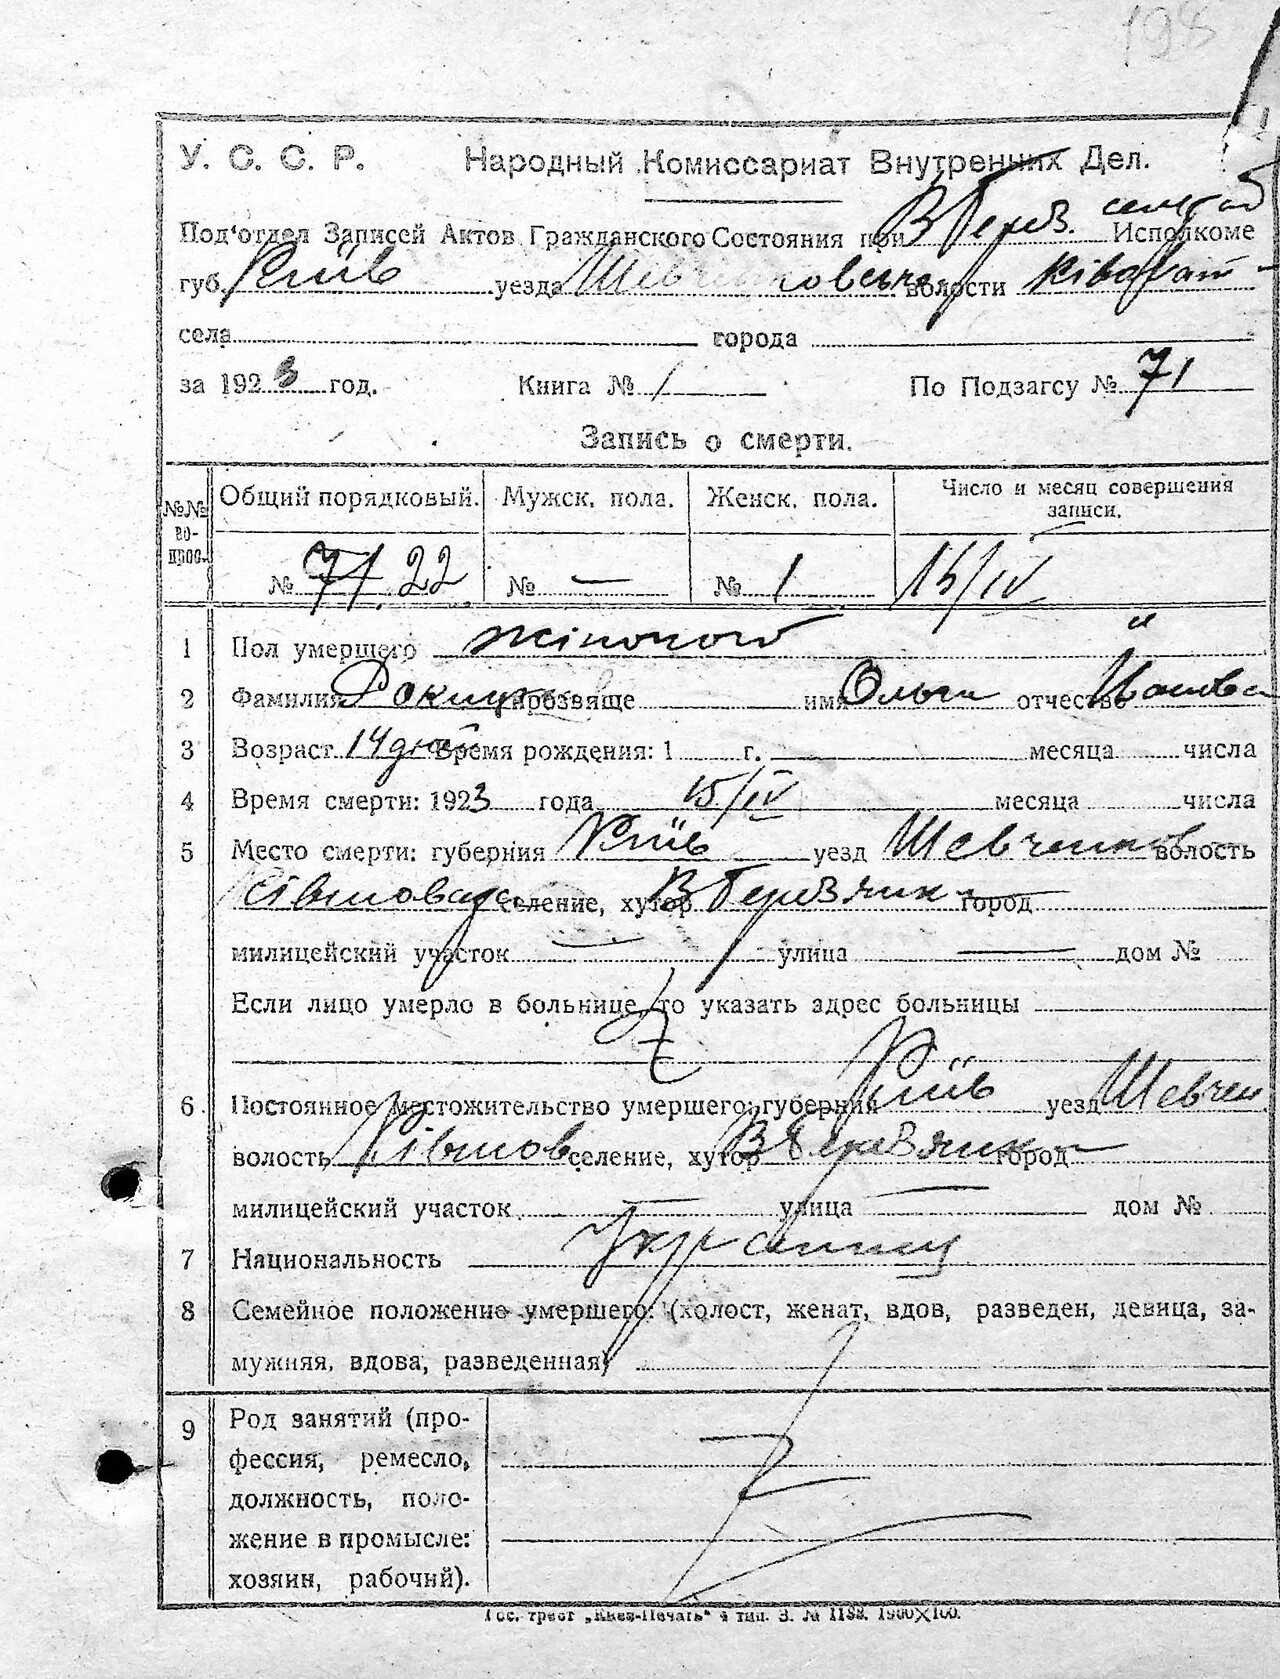 198
У. С. С. Р. Народный Комиссариат Внутренних Дел.
Под'отдел Записей Актов Гражданского Состояния при В Берез. Исполкоме
губ. Київ уезда волости
села города
за 1923 год. Книга № 1 По Подзагсу № 71
Запись о смерти.
№№ вопрос. Общий порядковый. Мужск. пола. Женск. пола. Число и месяц совершения записи.
№ 71. 22 № — № 1 15/IV
1 Пол умершего жіночого "
2 Фамилия прозвище имя Ольга отчество Іванова
3 Возраст 14 днів Время рождения: 1 г. месяца числа
4 Время смерти: 1923 года 15/IV месяца числа
5 Место смерти: губерния Київ уезд Шевченков волость
селение, хутор В Березянк город
милицейский участок — улица — дом №
Если лицо умерло в больнице, то указать адрес больницы
6. Постоянное местожительство умершего: губерния Київ уезд Шевчен
волость селение, хутор В Березянк город
милицейский участок — улица — дом №
7 Национальность Українец
8 Семейное положение умершего: (холост, женат, вдов, разведен, девица, за-
мужняя, вдова, разведенная)
9 Род занятий (про-
фессия, ремесло,
должность, поло-
жение в промысле:
хозяин, рабочий).
Гос. трест „Киев-Печать" 4 тип. З. № 1188. 1900×100.